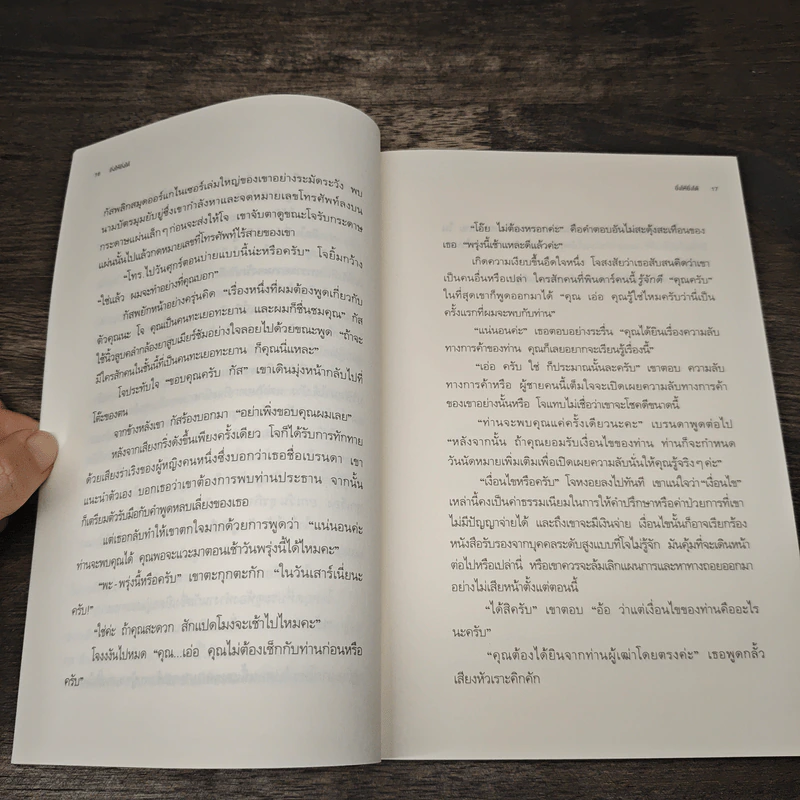 16 ยิ่งให้ยิ่งได้
กัสพลิกสมุดออร์แกไนเซอร์เล่มใหญ่ของเขาอย่างระมัดระวัง พบ
นามบัตรมุมยับยู่ซึ่งเขากำลังหาและจดหมายเลขโทรศัพท์ลงบน
กระดาษแผ่นเล็กๆ ก่อนจะส่งให้โจ เขาจับตาดูขณะโจรับกระดาษ
แผ่นนั้นไปแล้วกดหมายเลขที่โทรศัพท์ไร้สายของเขา
“โทร.ไปวันศุกร์ตอนบ่ายแบบนี้น่ะหรือครับ” โจยิ้มกว้าง
“ใช่แล้ว ผมจะทำอย่างที่คุณบอก”
กัสพยักหน้าอย่างครุ่นคิด “เรื่องหนึ่งที่ผมต้องพูดเกี่ยวกับ
ตัวคุณนะ โจ คุณเป็นคนทะเยอทะยาน และผมก็ชื่นชมคุณ” กัส
ใช้นิ้วลูบคลำกล้องยาสูบเมียร์ชัมอย่างใจลอยไปด้วยขณะพูด “ถ้าจะ
มีใครสักคนในชั้นนี้ที่เป็นคนทะเยอทะยาน ก็คุณนี่แหละ”
โจประทับใจ “ขอบคุณครับ กัส” เขาเดินมุ่งหน้ากลับไปที่
โต๊ะของตน
จากข้างหลังเขา กัสร้องบอกมา “อย่าเพิ่งขอบคุณผมเลย”
หลังจากเสียงกริ่งดังขึ้นเพียงครั้งเดียว โจก็ได้รับการทักทาย
ด้วยเสียงร่าเริงของผู้หญิงคนหนึ่งซึ่งบอกว่าเธอชื่อเบรนดา เขา
แนะนำตัวเอง บอกเธอว่าเขาต้องการพบท่านประธาน จากนั้น
ก็เตรียมตัวรับมือกับคำพูดหลบเลี่ยงของเธอ
แต่เธอกลับทำให้เขาตกใจมากด้วยการพูดว่า “แน่นอนค่ะ
ท่านจะพบคุณได้ คุณพอจะแวะมาตอนเช้าวันพรุ่งนี้ได้ไหมคะ”
“พะ-พรุ่งนี้หรือครับ” เขาตะกุกตะกัก “ในวันเสาร์เนี่ยนะ
ครับ!”
“ใช่ค่ะ ถ้าคุณสะดวก สักแปดโมงจะเช้าไปไหมคะ”
โจงงงันไปหมด “คุณ...เอ่อ คุณไม่ต้องเช็กกับท่านก่อนหรือ
ครับ”
ยิ่งให้ยิ่งได้ 17
“โอ๊ย ไม่ต้องหรอกค่ะ” คือคำตอบอันไม่สะดุ้งสะเทือนของ
เธอ “พรุ่งนี้เช้าแหละดีแล้วค่ะ”
เกิดความเงียบขึ้นอึดใจหนึ่ง โจสงสัยว่าเธอสับสนคิดว่าเขา
เป็นคนอื่นหรือเปล่า ใครสักคนที่พินดาร์คนนี้รู้จักดี “คุณครับ”
ในที่สุดเขาก็พูดออกมาได้ “คุณ เอ่อ คุณรู้ใช่ไหมครับว่านี่เป็น
ครั้งแรกที่ผมจะพบกับท่าน”
“แน่นอนค่ะ” เธอตอบอย่างระรื่น “คุณได้ยินเรื่องความลับ
ทางการค้าของท่าน คุณก็เลยอยากจะเรียนรู้เรื่องนี้”
“เอ่อ ครับ ใช่ ก็ประมาณนั้นละครับ” เขาตอบ ความลับ
ทางการค้าหรือ ผู้ชายคนนี้เต็มใจจะเปิดเผยความลับทางการค้า
ของเขาอย่างนั้นหรือ โจแทบไม่เชื่อว่าเขาจะโชคดีขนาดนี้
“ท่านจะพบคุณแค่ครั้งเดียวนะคะ” เบรนดาพูดต่อไป
“หลังจากนั้น ถ้าคุณยอมรับเงื่อนไขของท่าน ท่านก็จะกำหนด
วันนัดหมายเพิ่มเติมเพื่อเปิดเผยความลับนั่นให้คุณรู้จริงๆ ค่ะ”
“เงื่อนไขหรือครับ” โจหงอยลงไปทันที เขาแน่ใจว่า “เงื่อนไข”
เหล่านี้คงเป็นค่าธรรมเนียมในการให้คำปรึกษาหรือค่าป่วยการที่เขา
ไม่มีปัญญาจ่ายได้ และถึงเขาจะมีเงินจ่าย เงื่อนไขนั้นก็อาจเรียกร้อง
หนังสือรับรองจากบุคคลระดับสูงแบบที่โจไม่รู้จัก มันคุ้มที่จะเดินหน้า
ต่อไปหรือเปล่านี่ หรือเขาควรจะล้มเลิกแผนการและหาทางถอยออกมา
อย่างไม่เสียหน้าตั้งแต่ตอนนี้
“ได้สิครับ” เขาตอบ “อ้อ ว่าแต่เงื่อนไขของท่านคืออะไร
นะครับ”
“คุณต้องได้ยินจากท่านผู้เฒ่าโดยตรงค่ะ” เธอพูดกลั้ว
เสียงหัวเราะคิกคัก